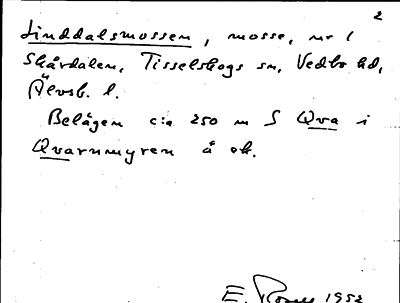 2
Linddalsmossen, mosse, nr 1
Skårdalen, Tisselskogs sn, Vedbo hd,
Älvsb. l.
Belägen c:a 250 m S Qva i
Qvarnmyren å ek.
E. 1952